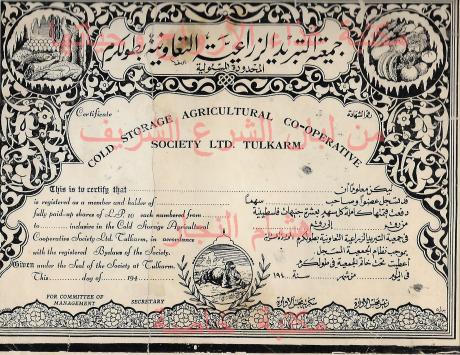 جمعية التبريد الزراعية التعاونية بطولكرم
المحدودة المسئولية
مكتبة
من اجل الشرع الشريف
هشام النجار
مكتبة خاصة
Certificate
رقم الشهادة
COLD STORAGE AGRICULTURAL CO-OPERATIVE
SOCIETY LTD. TULKARM
This is to certify that
is registered as a member and holder of
fully paid-up shares of L.P. 10 each numbered from
to inclusive in the Cold Storage Agricultural
Cooperative Society Ltd. Tulkarm, in accordance
with the registered Byelaws of the Society.
Given under the Seal of the Society at Tulkarm.
This day of 194
FOR COMMITTEE OF
MANAGEMENT
SECRETARY
ليكن معلوما أن
قد تسجل عضوا وصاحب سهما
دفعت قيمتها كاملة كل سهم بعشرة جنيهات فلسطينية
من رقم إلى رقم
في جمعية التبريد الزراعية التعاونية بطولكرم
بموجب نظام الجمعية المسجل
أعطيت تحت خاتم الجمعية في طولكرم
في اليوم من شهر ١٩٤
سكرتير لجنة الادارة
رئيس لجنة الادارة